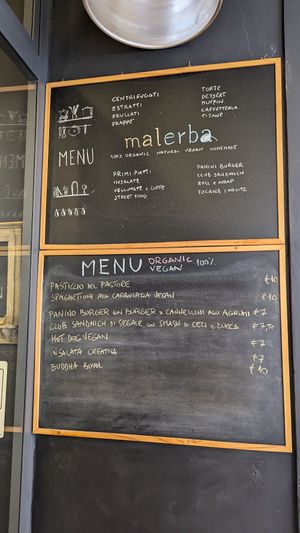 CENTRIFUGATI
ESTRATTI
FRULLATI
FRAPPÈ
TORTE
DESSERT
MUFFIN
CAFFETTERIA
TISANE
malerba
MENU
100% ORGANIC NATURAL VEGAN HOMEMADE
PRIMI PIATTI
INSALATE
VELLUTATE e ZUPPE
STREET FOOD
PANINI BURGER
CLUB SANDWICH
ROLL e WRAP
FOCACCE FARCITE
MENU ORGANIC VEGAN 100%
PASTICCIO DEL PASTORE €10
SPAGHETTONI ALLA CARBONARA VEGAN €10
PANINO BURGER CON BURGER CANNELLINI AGLI AGRUMI €7
CLUB SANDWICH DI SEGALE CON SMASH DI CECI E ZUCCA €7,50
HOT DOG VEGAN €7
INSALATA CREATIVA €7
BUDDHA BOWL €10